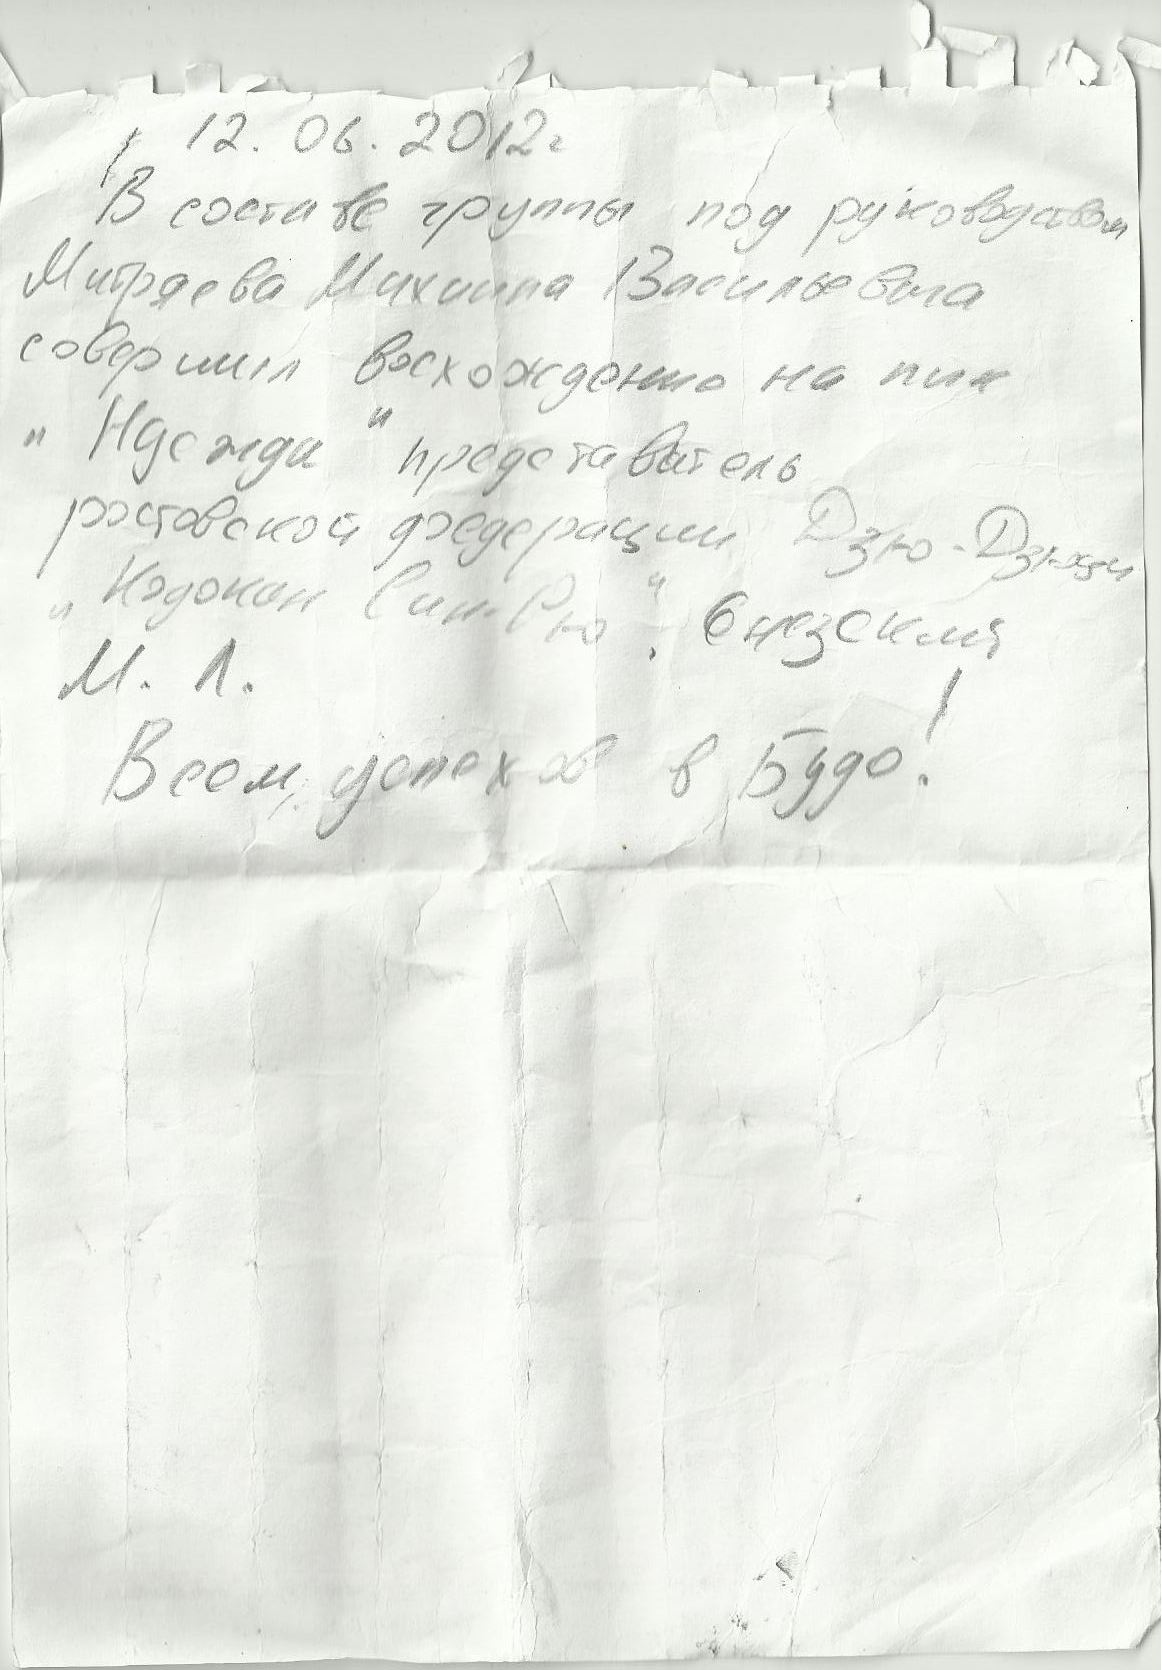 12.06.2012г
В составе группы под руководством
Митряева Михаила Васильевича
совершил восхождению на пик
„Ндежда" представитель
ростовской федерации Дзю-Дзюци
„Кодокан Син-Рю".
М. Л.
Всем успехов в Будо!